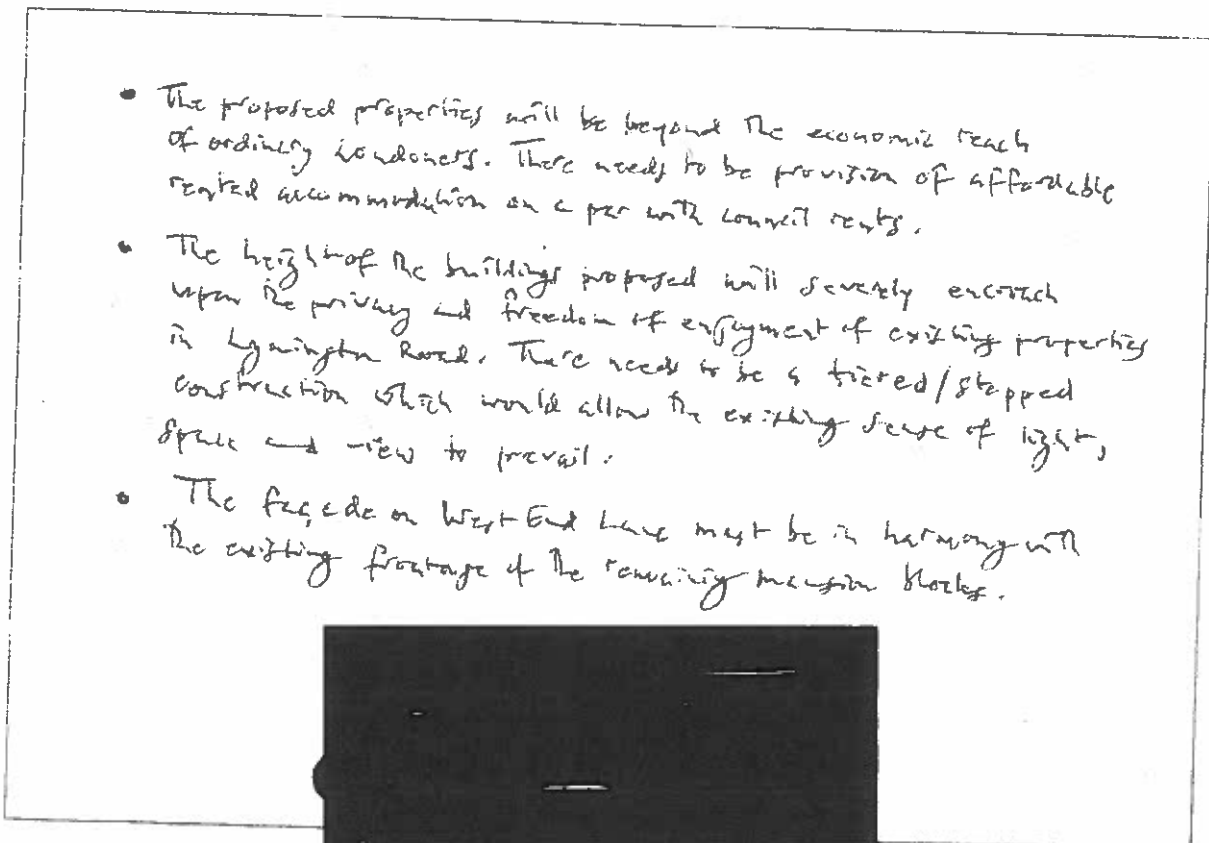 • The proposed properties will be beyond the economic reach
of ordinary Londoners. There needs to be provision of affordable
rented accommodation on a par with council rents.
• The height of the buildings proposed will severely encroach
upon the privacy and freedom of enjoyment of existing properties
in Lymington Road. There needs to be a tiered/stepped
construction which would allow the existing sense of light,
space and view to prevail.
• The façade on West End Lane must be in harmony with
the existing frontage of the remaining mansion blocks.